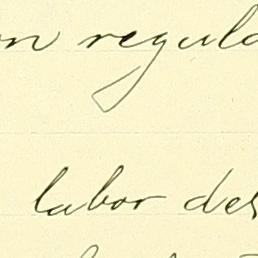 on regula
labor des